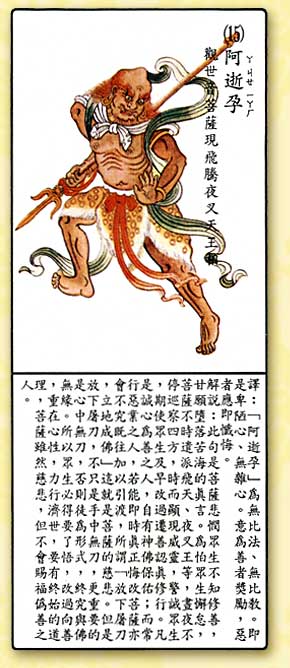 ⒂阿逝孕
觀世音菩薩現飛騰夜叉天王
譯：「阿逝孕」為無比法、無比教。即
是卑陋心、無雜心。意為善者獎勵，惡
者應即懺悔。
解說：此句是菩薩悲憫眾生不知修善，
甘願墮落苦海的真言。為怕眾生懈怠，
菩薩不時派遣天、夜叉等
停巡察四方，時而顯現威靈，警誡眾生。
期使眾生及早改過遷善，凡
是誠心為善之人，自有神佛保佑；而常
行惡業之人，若能即時真心懺悔，菩薩亦
會不究既往，加以引渡，所謂「放下屠刀
立地成佛」這就是菩薩的慈悲。但
放下屠刀，不只是手中無刀，更重要的
是心中無刀，否則徒為形式，終究與佛
無緣。所以眾生必得要了悟，改過向善之
理，重在心性，力行濟世，
菩薩雖然慈悲，但不會賜福偽善之
人。